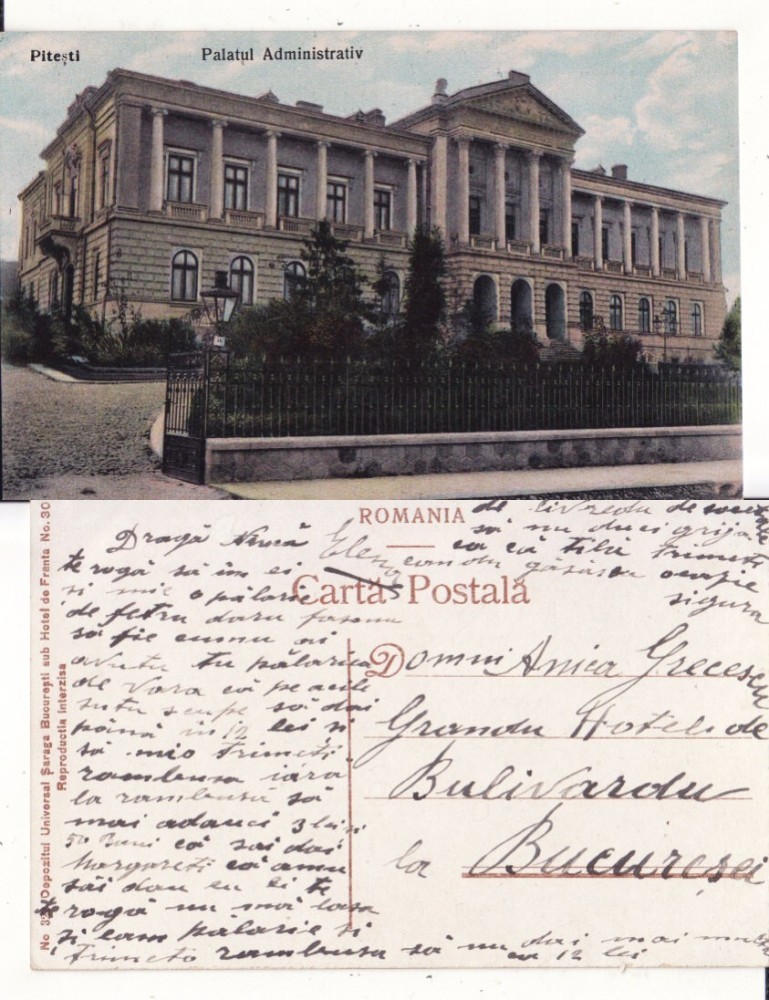 Pitești
Palatul Administrativ
ROMANIA
Carta Postala
No 32 Depozitul Universal Șaraga București sub Hotel de Franta No. 30
Reproductia Interzisa
Dragă
te rogă să îm ei
și mie o pălărie
de fetru daru
să fie cumu ai
avutu tu pălăria
de vara că pe acile
să dai
până in 12 lei și
să mio trimeti
rambursa iară
la rambursă să
mai adauci 3 lei și
50 bani că săi dai
Margareti că amu
săi dau eu ei te
te rogă nu mă lasa
și eam pălărie și
trimeto rambursa să nu dai mai multu
ca 12 lei
de livredu de
să nu duci grija
ca că tilu trimeti
candu găsăscu ocazie
sigura
Domni Anica Grecescu
Grandu Hotelu de
Bulivardu
la Bucureșei